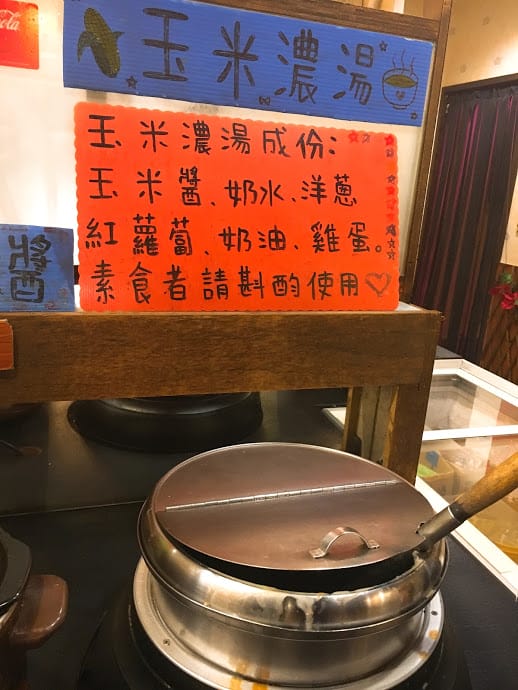 Cola
玉米濃湯
玉米濃湯成份:
玉米醬、奶水、洋蔥
紅蘿蔔、奶油、雞蛋。
素食者請斟酌使用♡
醬